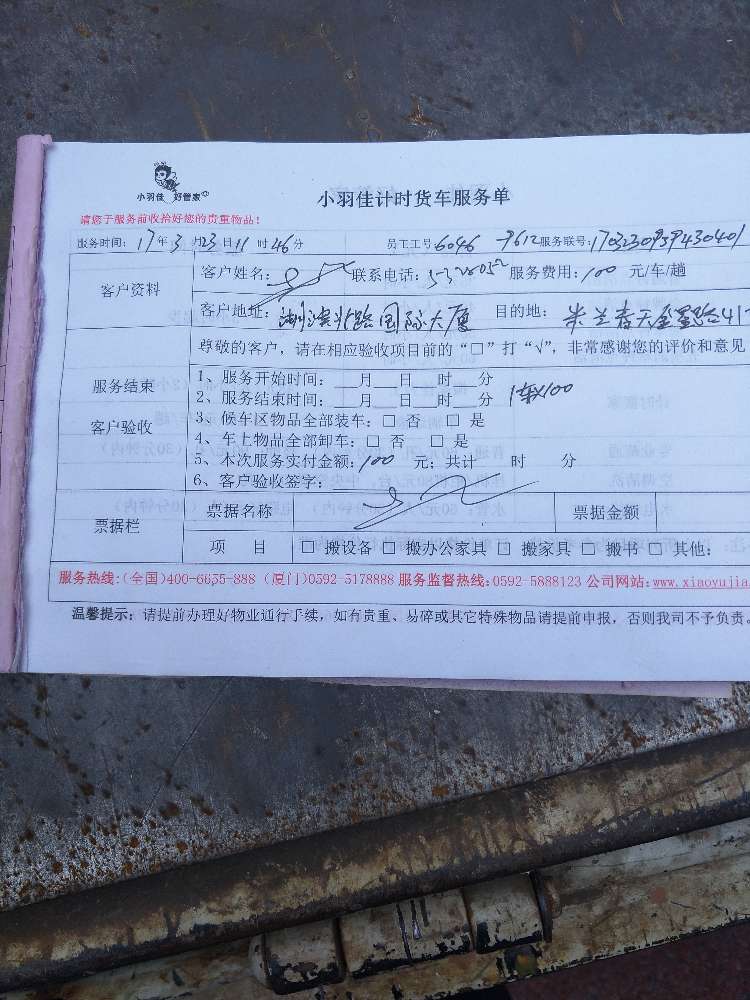 小羽佳 好管家
小羽佳计时货车服务单
请您于服务前收拾好您的贵重物品！
服务时间：17年3月23日11时46分 员工工号6046 9612服务联号：1703230939430401
客户资料
客户姓名： 联系电话：5326052 服务费用：100 元/车/趟
客户地址：湖滨北路国际大厦 目的地：米兰春天金
尊敬的客户，请在相应验收项目前的“□”打“√”，非常感谢您的评价和意见
服务结束
客户验收
1、服务开始时间：__月__日__时__分
2、服务结束时间：__月__日__时__分 1车X100
3、候车区物品全部装车：□ 否 □ 是
4、车上物品全部卸车：□ 否 □ 是
5、本次服务实付金额：100 元；共计 时 分
6、客户验收签字：
票据栏
票据名称 票据金额
项 目 □ 搬设备 □ 搬办公家具 □ 搬家具 □ 搬书 □ 其他：
服务热线：(全国)400-6635-888 (厦门)0592-5178888 服务监督热线：0592-5888123 公司网站：www.xiaoyujia.
温馨提示：请提前办理好物业通行手续，如有贵重、易碎或其它特殊物品请提前申报，否则我司不予负责。